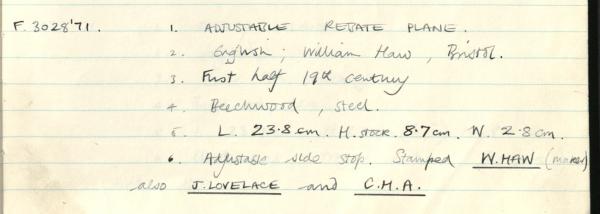 F. 3028'71. 1. ADJUSTABLE REBATE PLANE.
2. English; William Haw, Bristol.
3. First half 19th century
4. Beechwood, steel.
5. L. 23.8 cm. H. stock. 8.7 cm. W. 2.8 cm.
6. Adjustable side stop. Stamped W. HAW (maker)
also J. LOVELACE and C.H.A.